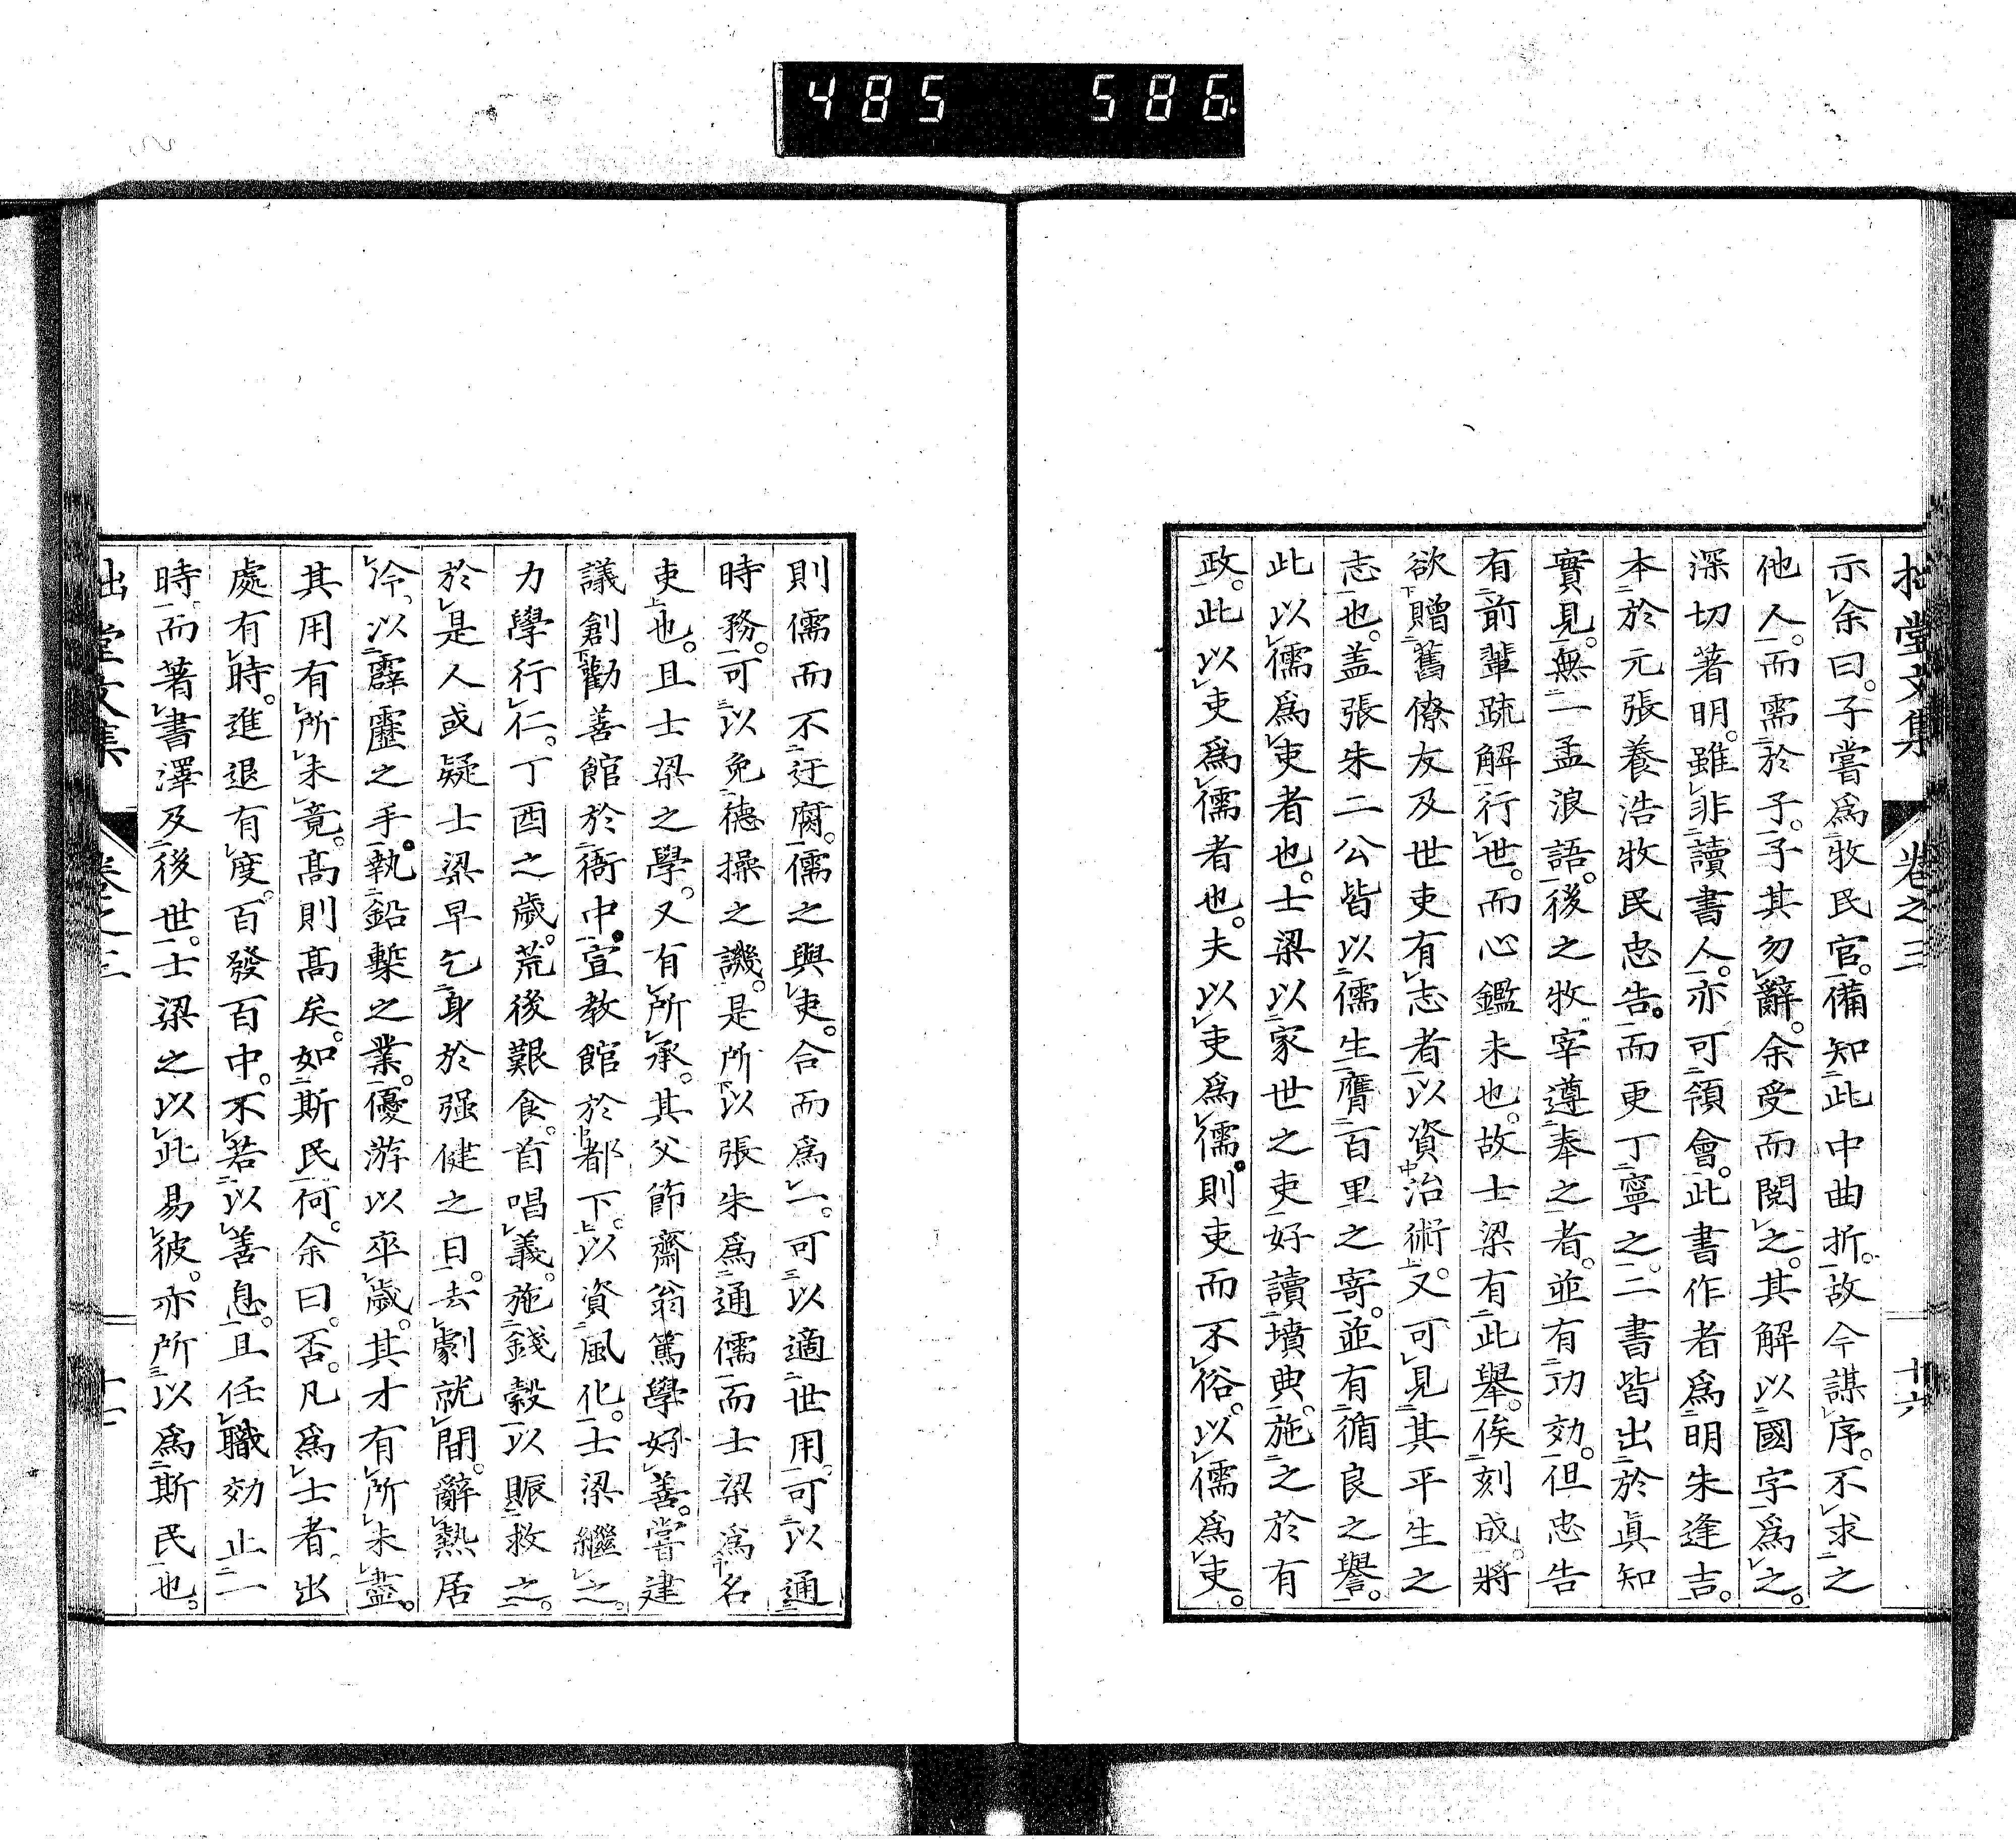 485 586
拙堂文集 卷之三 十六
示余曰。子嘗爲牧民官。備知此中曲折。故今謀序。不求之
他人。而需於子。子其勿辭。余受而閱之。其解以國字爲之。
深切著明。雖非讀書人。亦可領會。此書作者爲明朱逢吉。
本於元張養浩牧民忠告。而更丁寧之。二書皆出於眞知
實見。無一孟浪語。後之牧宰遵奉之者。並有功効。但忠告
有前輩疏解行世。而心鑑未也。故士梁有此舉。俟刻成。將
欲贈舊僚友及世吏有志者。以資治術。又可見其平生之
志也。盖張朱二公皆以儒生膺百里之寄。並有循良之譽。
此以儒爲吏者也。士梁以家世之吏好讀墳典。施之於有
政。此以吏爲儒者也。夫以吏爲儒。則吏而不俗。以儒爲吏。
則儒而不迂腐。儒之與吏。合而爲一。可以適世用。可以通
時務。可以免德操之譏。是所以張朱爲通儒而士梁爲名
吏也。且士梁之學。又有所承。其父節齋翁篤學好善。嘗建
議創勸善館於衙中。宣教館於都下。以資風化。士梁繼之。
力學行仁。丁酉之歲。荒後艱食。首唱義。施錢穀以賑救之。
於是人或疑士梁早乞身於强健之日。去劇就閒。辭熱居
冷。以霹靂之手。執鉛槧之業。優游以卒歲。其才有所未盡。
其用有所未竟。高則高矣。如斯民何。余曰。否。凡爲士者。出
處有時。進退有度。百發百中。不若以善息。且任職効止一
時。而著書澤及後世。士梁之以此易彼。亦所以爲斯民也。
堂文集 卷之三